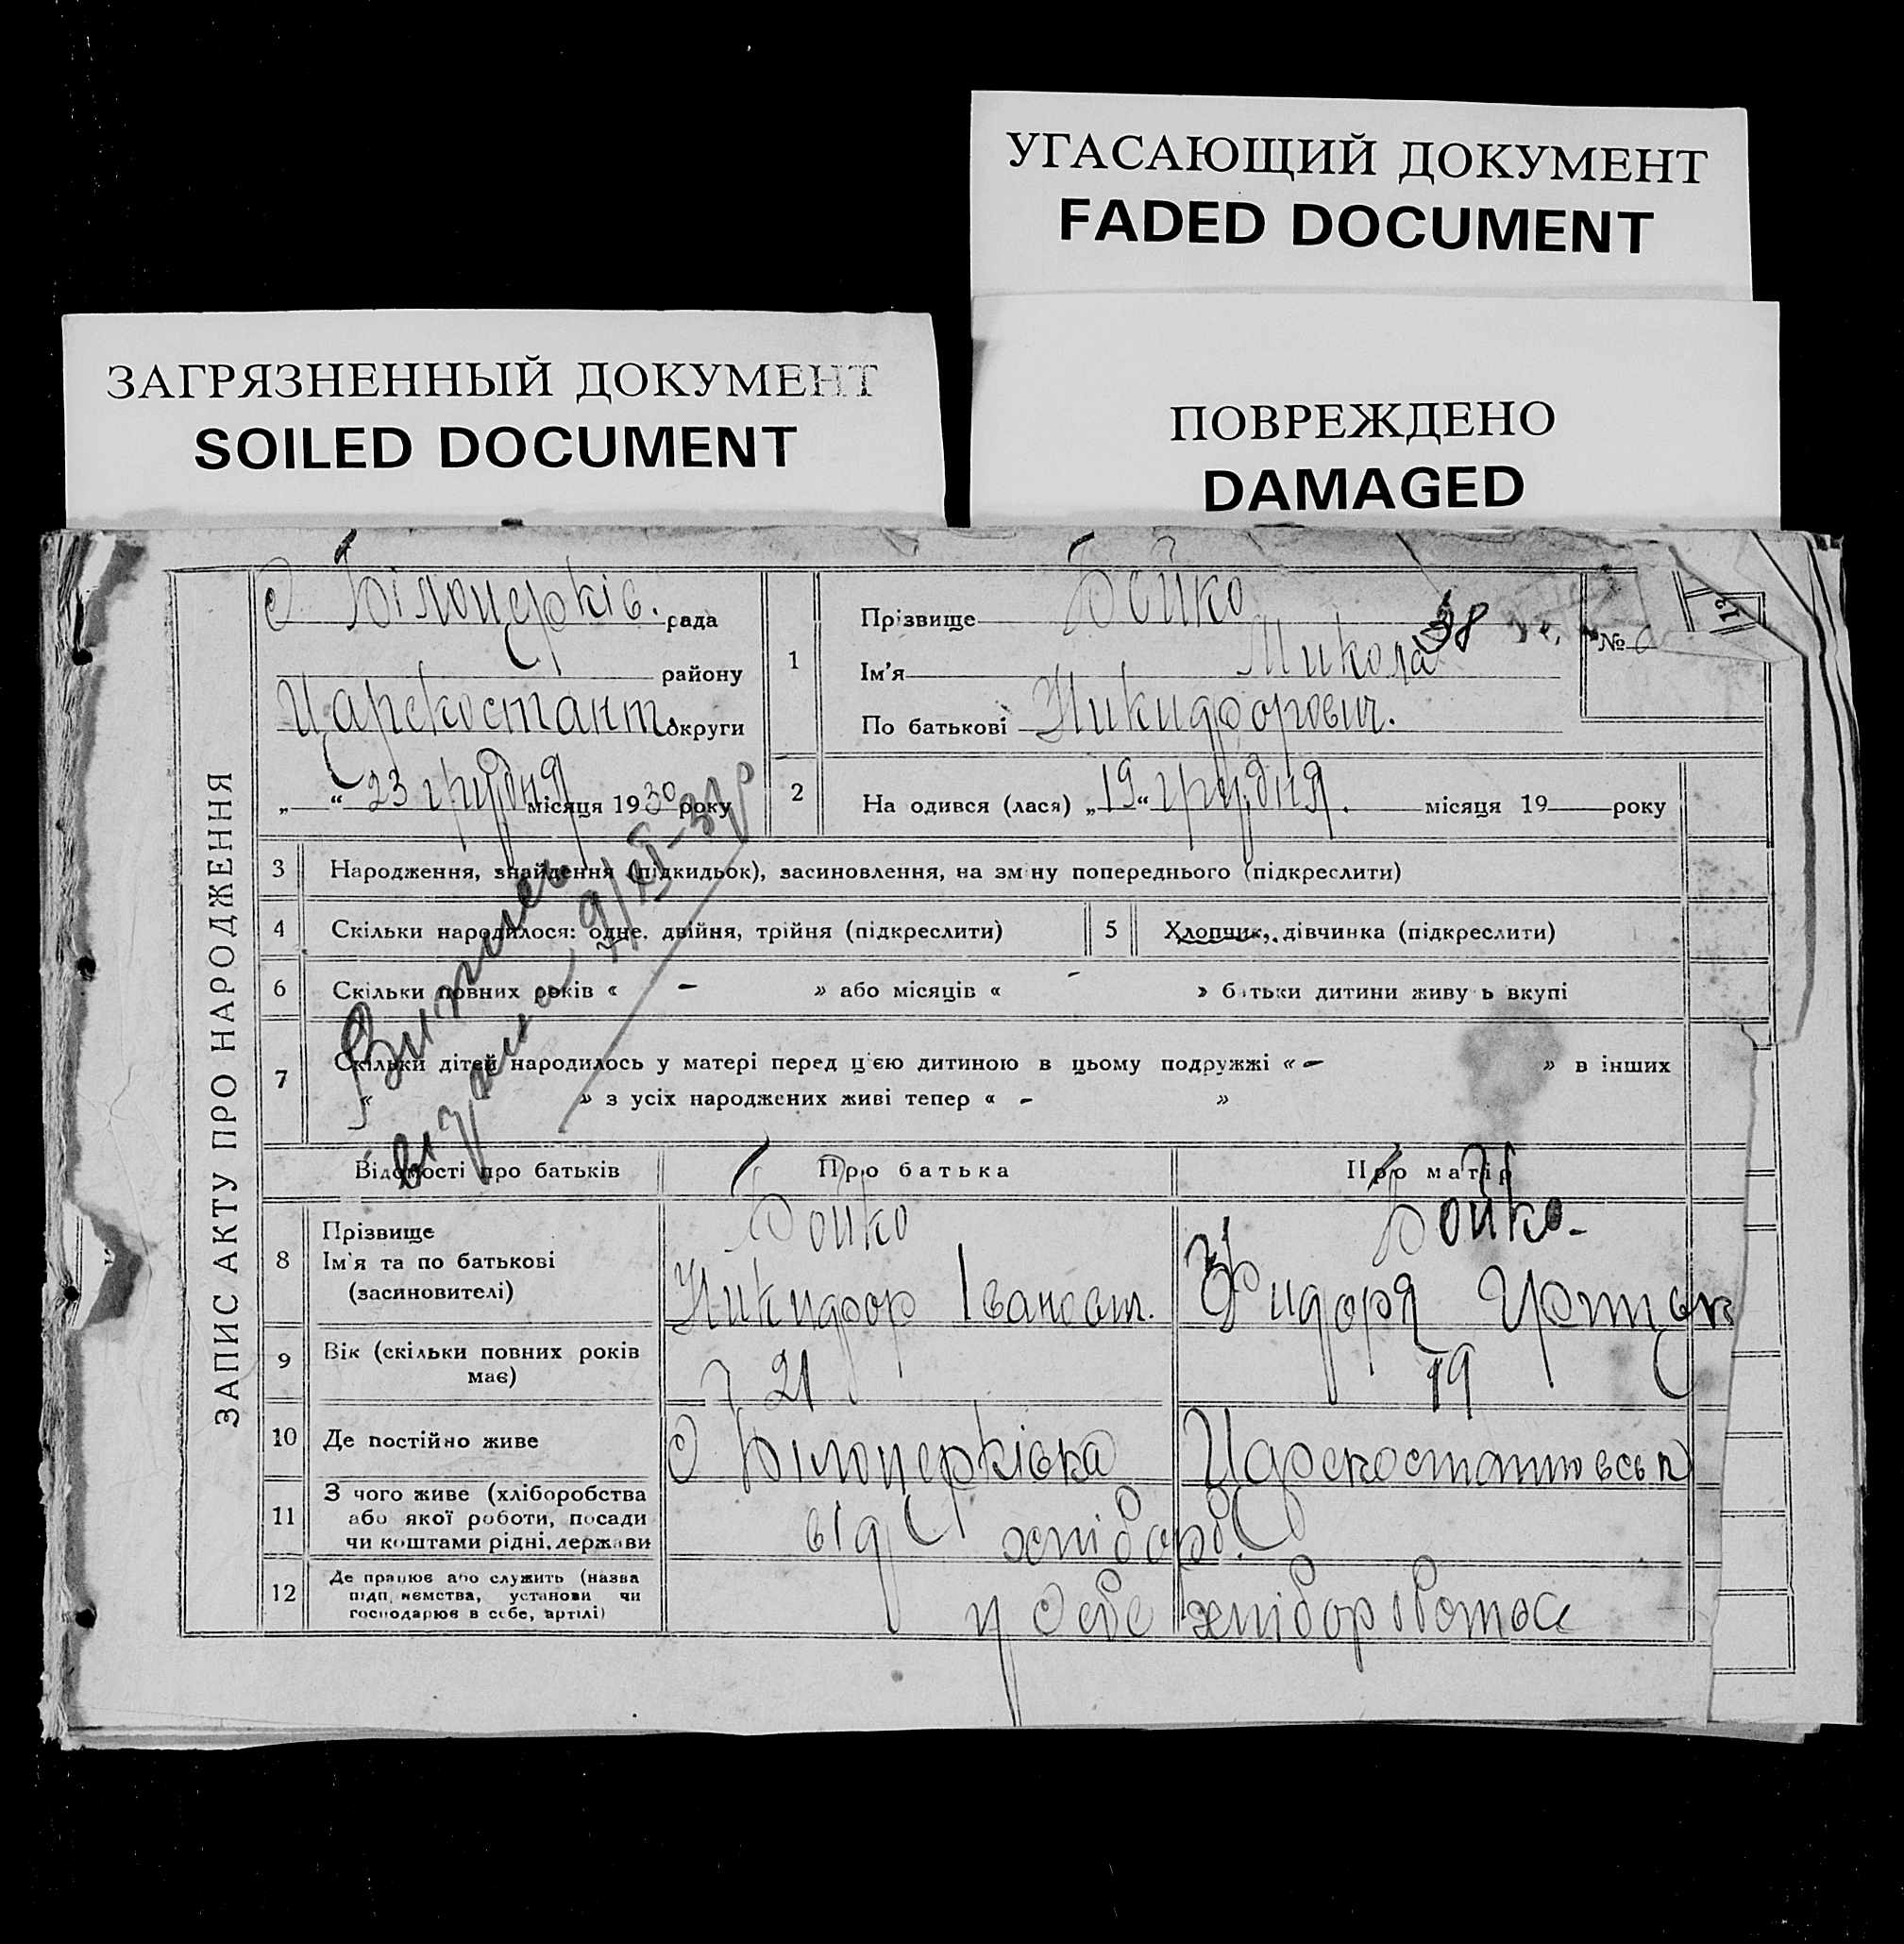 УГАСАЮЩИЙ ДОКУМЕНТ
FADED DOCUMENT
ЗАГРЯЗНЕННЫЙ ДОКУМЕНТ
SOILED DOCUMENT
ПОВРЕЖДЕНО
DAMAGED
ЗАПИС АКТУ ПРО НАРОДЖЕННЯ
С Білоцерків. рада
району
Царекостант округи
„ “ 23 грудня місяця 1930 року
1
Прізвище Бойко
38
Ім'я Микола
По батькові Никидфорович.
№
12
2
На одився (лася) „19“ грудня. місяця 19 року
3 Народження, знайдення (підкидьок), засиновлення, на зм ну попереднього (підкреслити)
4 Скільки народилося: одне, двійня, трійня (підкреслити)
5 Хлопчик, дівчинка (підкреслити)
6 Скільки повних років « - » або місяців « - » б тьки дитини живу ь вкупі
7 Скільки дітей народилось у матері перед ц'єю дитиною в цьому подружжі « - » в інших
« » з усіх народжених живі тепер « - »
Випис
видана 9/XI-37р
Відомості про батьків Про батька Про матір
8
Прізвище
Ім'я та по батькові
(засиновителі)
Бойко
Никидфор Іванович.
Бойко-
Фидоря
9 Вік (скільки повних років
має)
21
19
10 Де постійно живе С Білоцерківка Царекостантовськ
11 З чого живе (хліборобства
або якої роботи, посади
чи коштами рідні, держави
від хлібороб.
12 Де працює або служить (назва
підп иємства, установи чи
господарює в себе, артілі)
у себе хліборобством